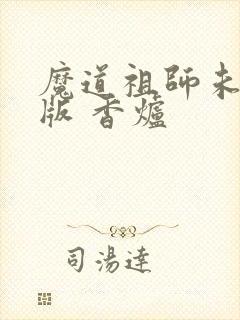 魔道祖師未
版 香爐
司湯達